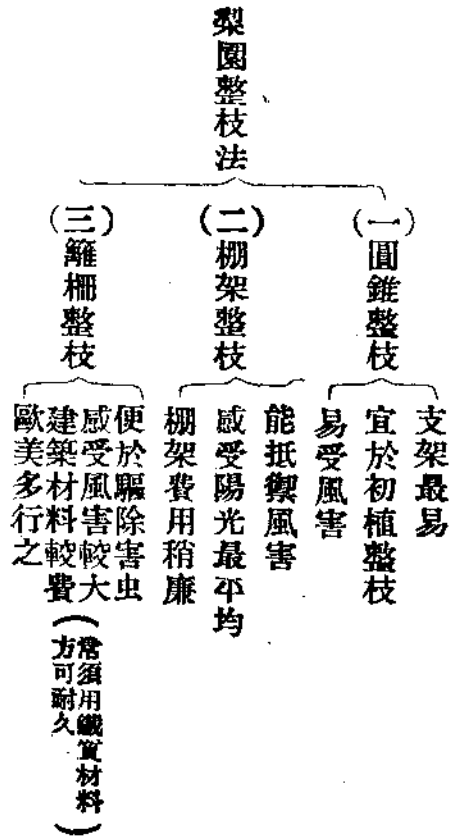 梨園整枝法
(一)圓錐整枝
支架最易
宜於初植整枝
易受風害
(二)棚架整枝
能抵禦風害
感受陽光最平均
棚架費用稍廉
(三)籬柵整枝
便於驅除害虫
感受風害較大
建築材料較費(常須用鐵質材料
方可耐久)
歐美多行之